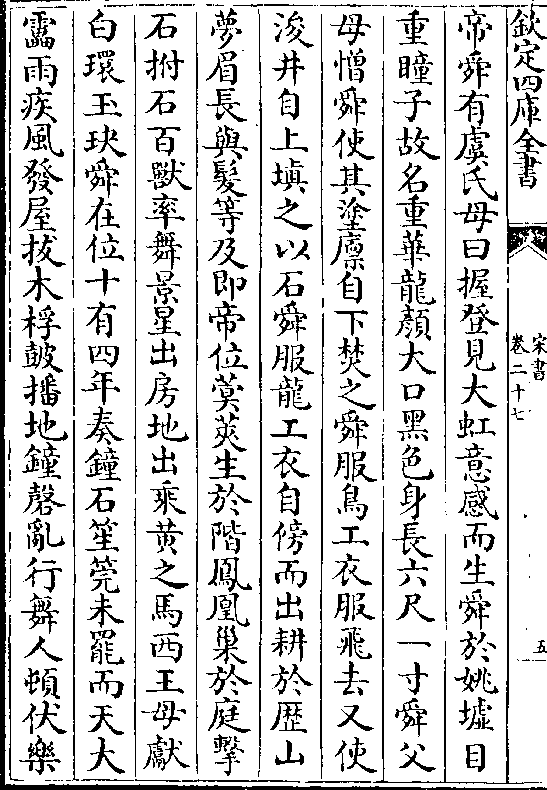 欽定四庫全書
宋書
卷二十七
五
帝舜有虞氏母曰握登見大虹意感而生舜於姚墟目
重瞳子故名重華龍顏大口黑色身長六尺一寸舜父
母憎舜使其塗廩自下焚之舜服鳥工衣服飛去又使
浚井自上填之以石舜服龍工衣自傍而出耕於歷山
夢眉長與髮等及即帝位蓂莢生於階鳳凰巢於庭擊
石拊石百獸率舞景星出房地出乘黃之馬西王母獻
白環玉玦舜在位十有四年奏鐘石笙筦未罷而天大
靁雨疾風發屋拔木桴鼓播地鐘磬亂行舞人頓伏樂